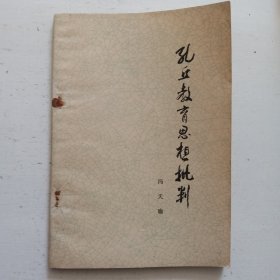 孔丘教育思想批判
冯天瑜